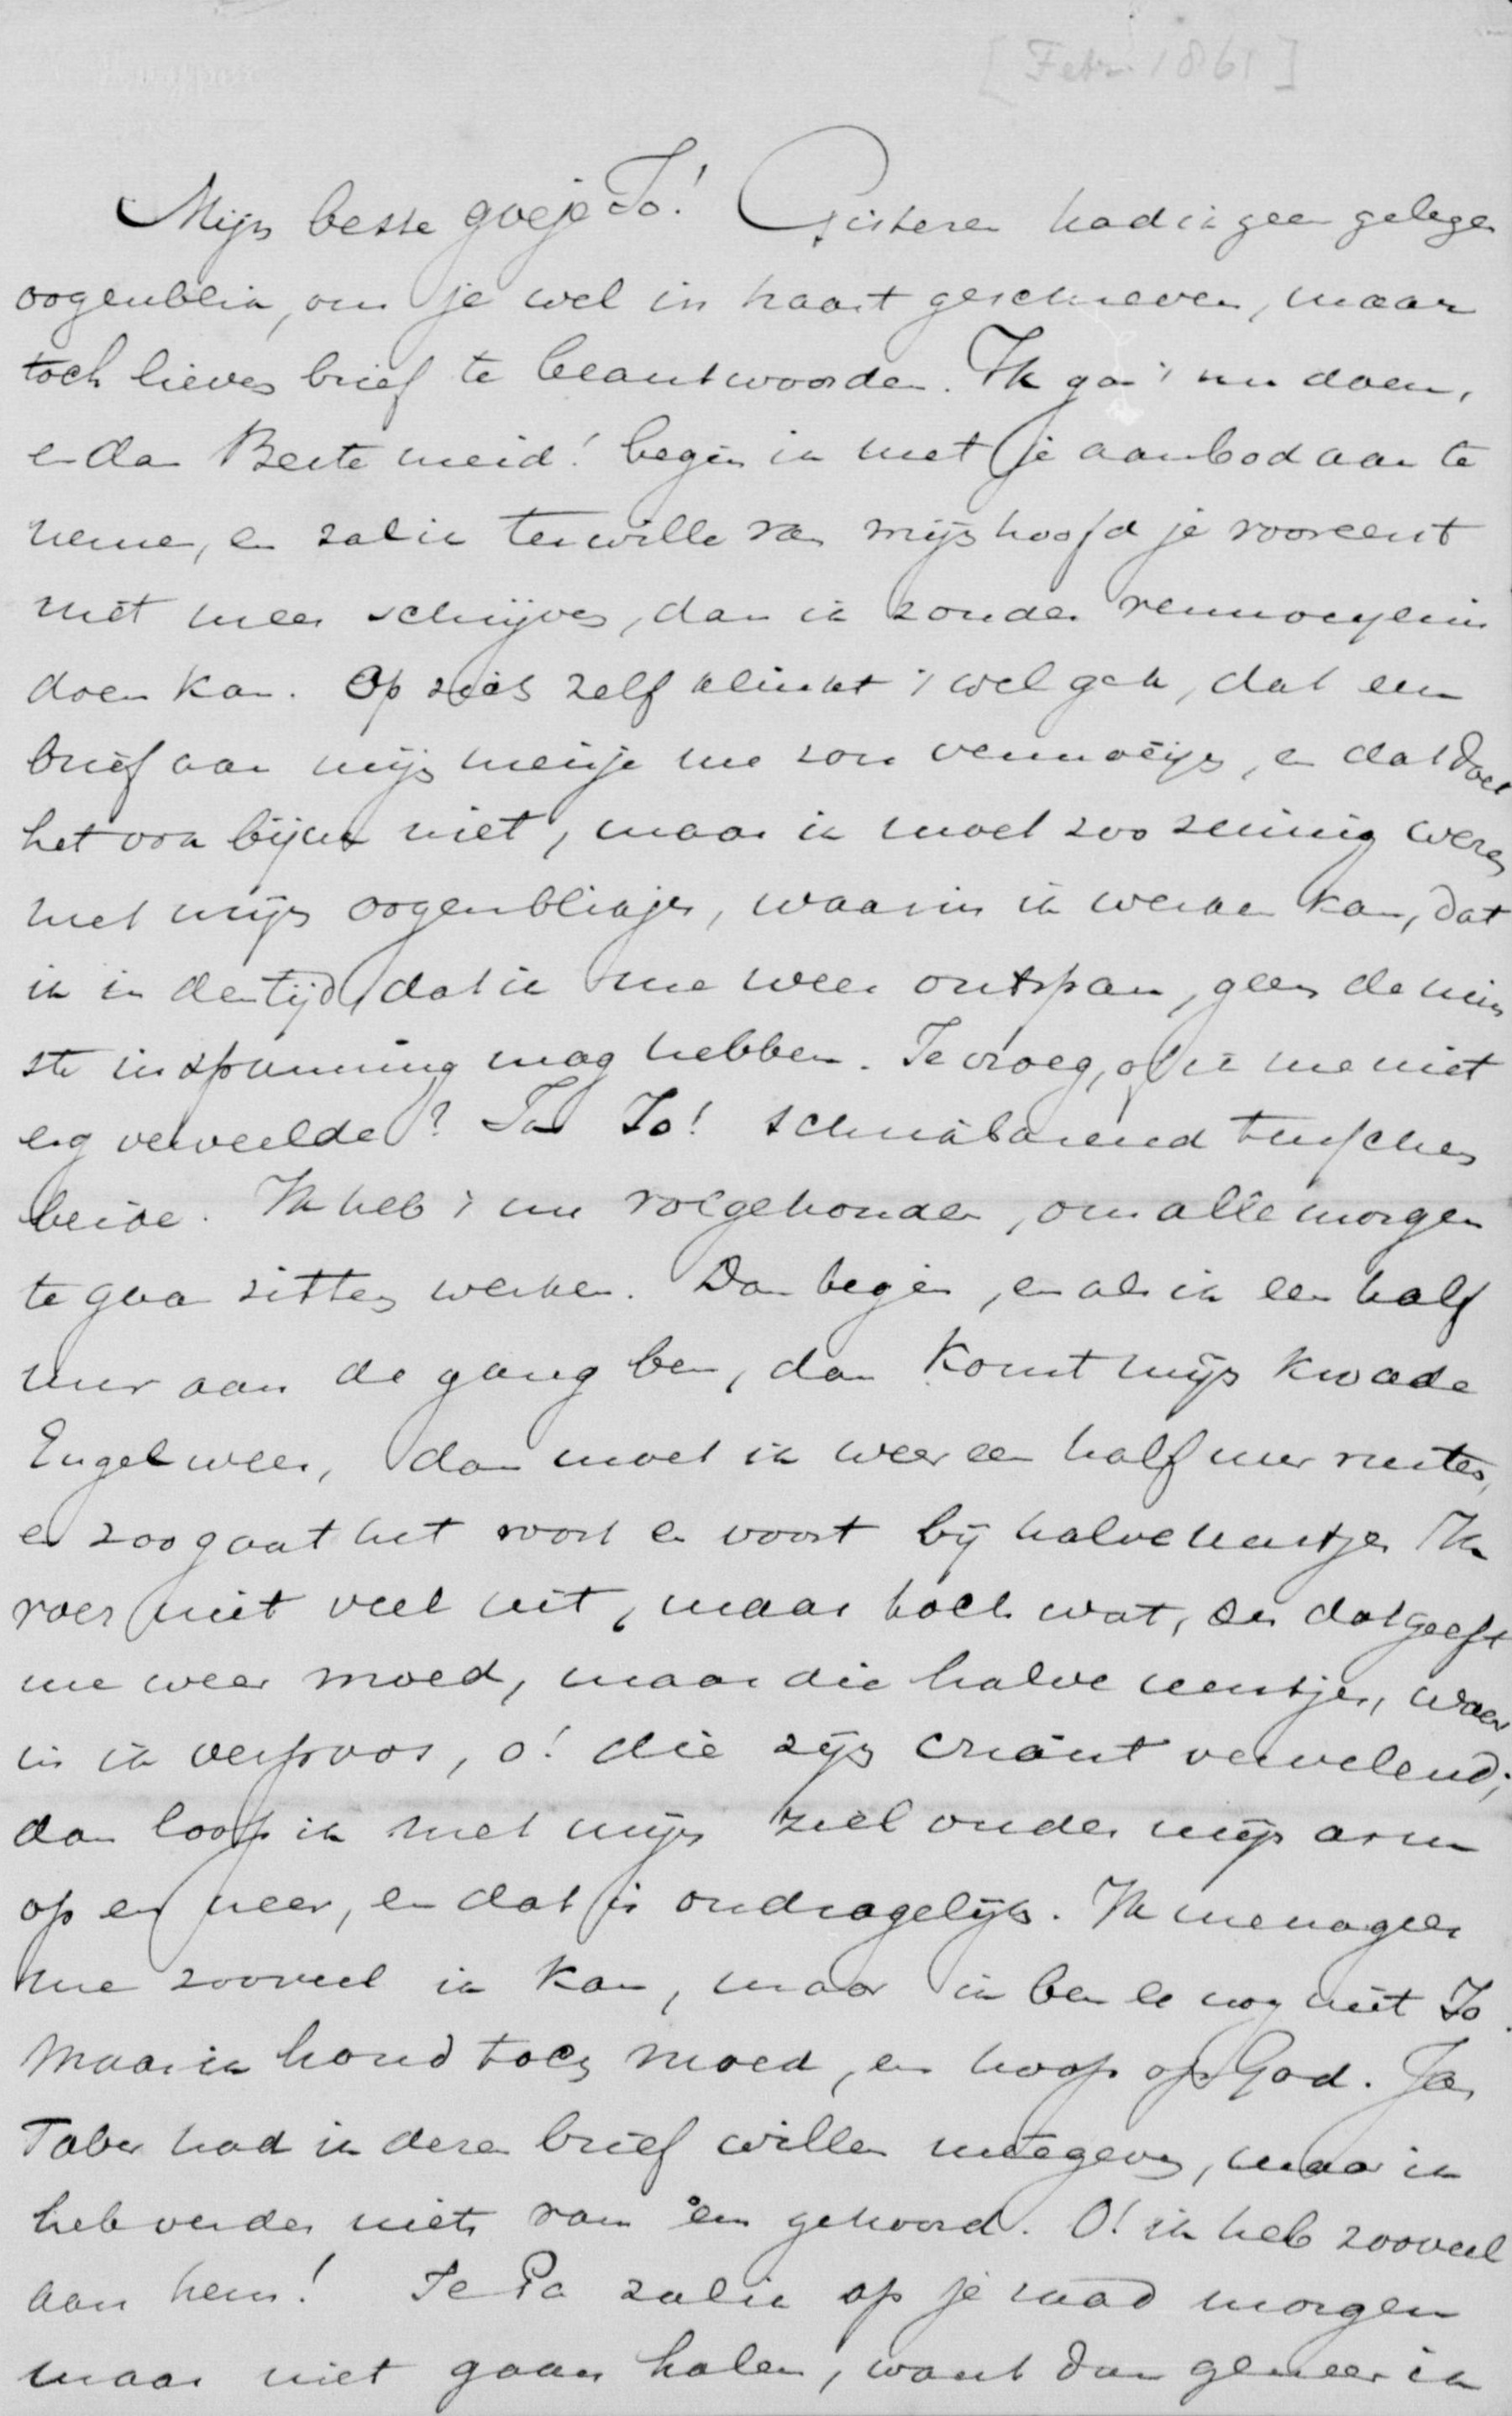 [Febr. 1861]
Mijn beste goeje Jo! Gisteren had ik geen gelegen
oogenblik, om je wel in haast geschreven, maar
toch lieven brief te beantwoorden. Ik ga 't nu doen,
en dan Beste meid! begin ik met je aanbod aan te
nemen, en zal ik terwille van mijn hoofd je vooreerst
niet meer schrijven, dan ik zonder vermoeyenis
doen kan. Op zich zelf klinkt 't wel gek, dat een
brief aan mijn meisje me zou vermoeijen, en dat doet
het ook bijna niet, maar ik moet zoo zuinig wezen
met mijn oogenblikjes, waarin ik werken kan, dat
ik in den tijd, dat ik me weer ontspan, geen de min
ste inspanning mag hebben. Je vroeg, of ik me niet
erg verveelde? Ja Jo! schrikbarend tusschen
beide. Ik heb 't nu volgehouden, om alle morgen
te gaan zitten werken. Dan begin, en als ik een half
uur aan de gang ben, dan komt mijn kwade
Engel weer, dan moet ik weer een half uur rusten,
en zoo gaat het voort en voort bij halve uurtjes Ik
voer niet veel uit, maar toch wat, en dat geeft
me weer moed, maar die halve uurtjes, waar
in ik verpoos, o! die zijn criant vervelend;
dan loop ik met mijn ziel onder mijn arm
op en neer, en dat is ondragelijk. Ik menageer
me zooveel ik kan, maar ik ben er nog niet Jo.
Maar ik houd toch moed, en hoop op God. Jan
Taber had ik dezen brief willen meegeven, maar ik
heb verder niets van 'em gehoord. O! ik heb zooveel
aan hem! Je Pa zal ik op je raad morgen
maar niet gaan halen, want dan geneer ik